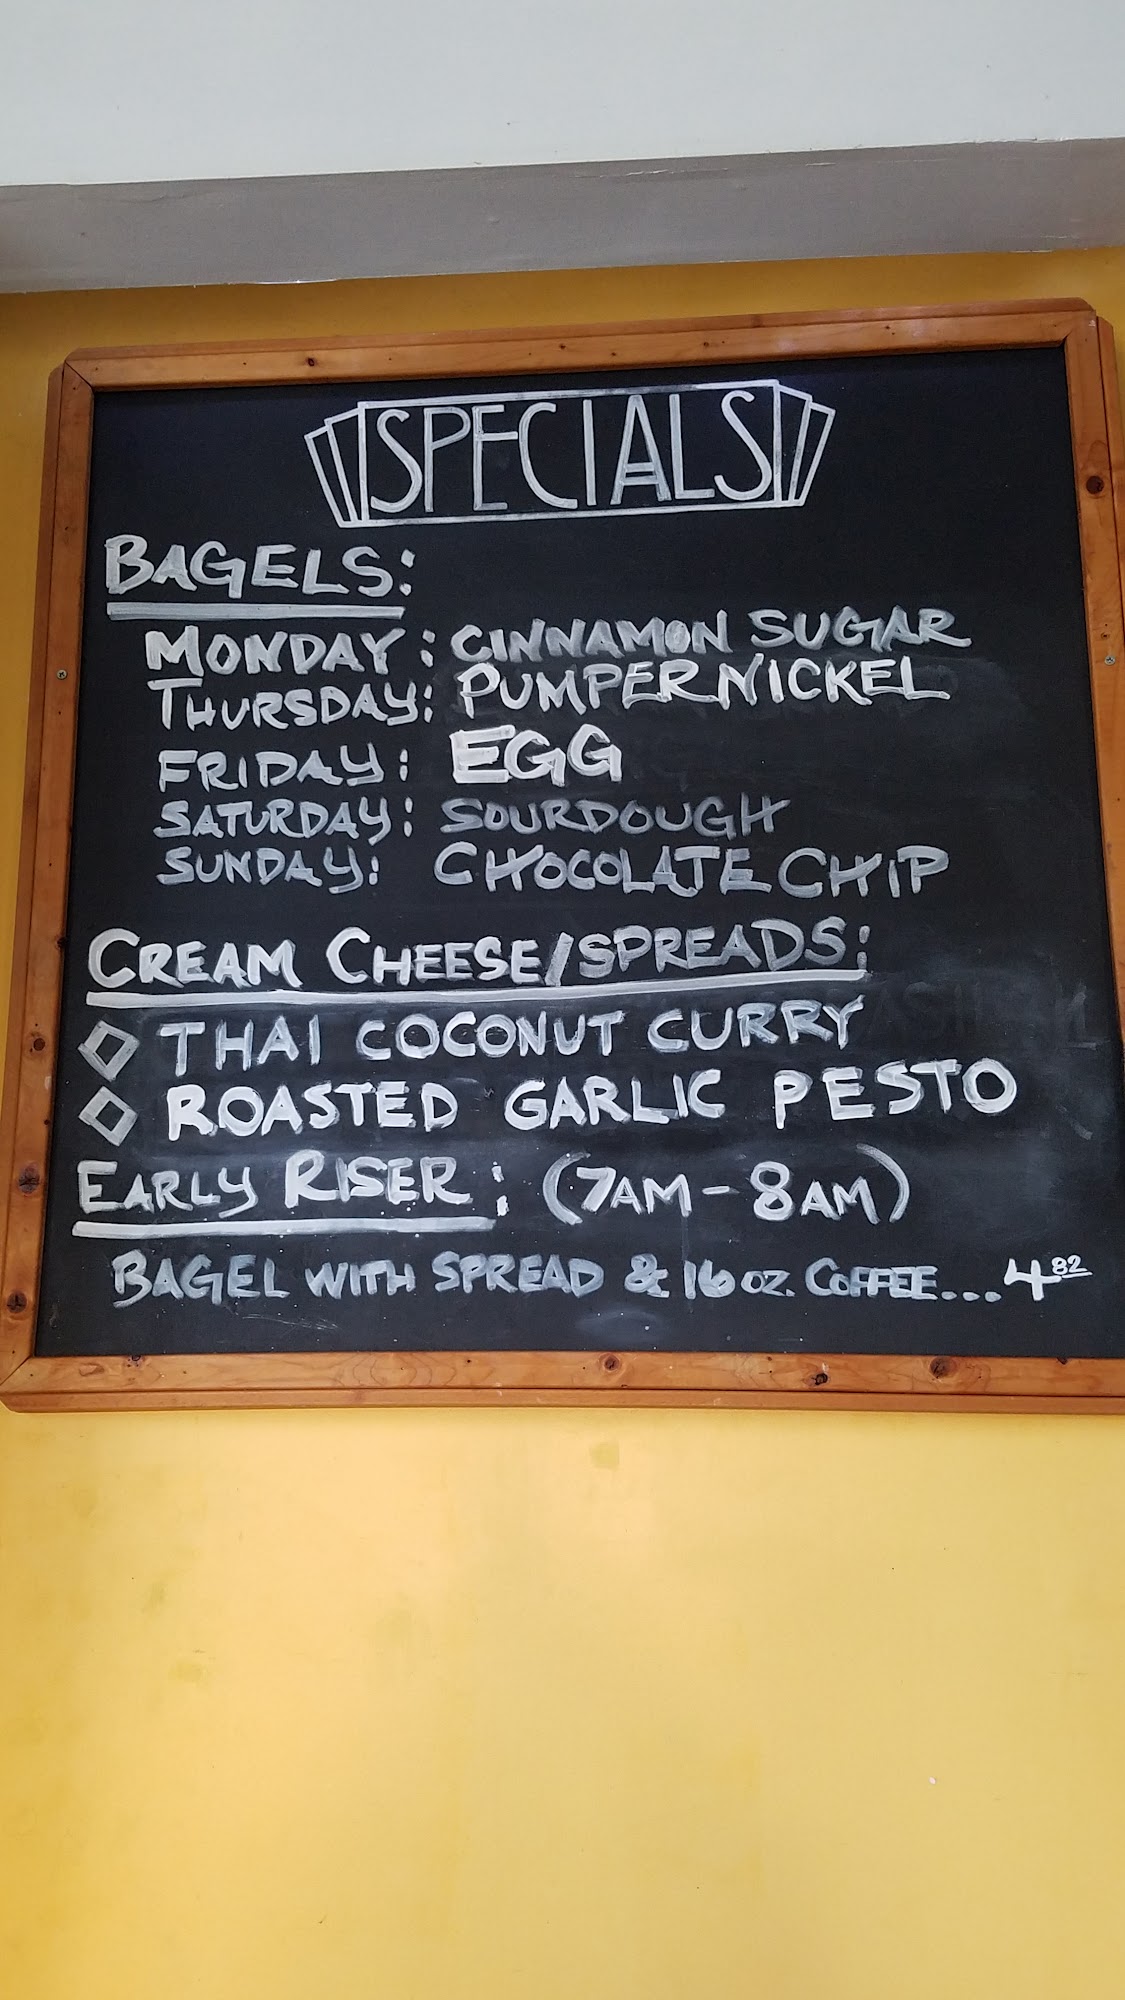 SPECIALS
BAGELS:
MONDAY: CINNAMON SUGAR
THURSDAY: PUMPERNICKEL
FRIDAY: EGG
SATURDAY: SOURDOUGH
SUNDAY: CHOCOLATE CHIP
CREAM CHEESE/SPREADS:
◇ THAI COCONUT CURRY
◇ ROASTED GARLIC PESTO
EARLY RISER: (7AM-8AM)
BAGEL WITH SPREAD & 16 OZ. COFFEE...4 82